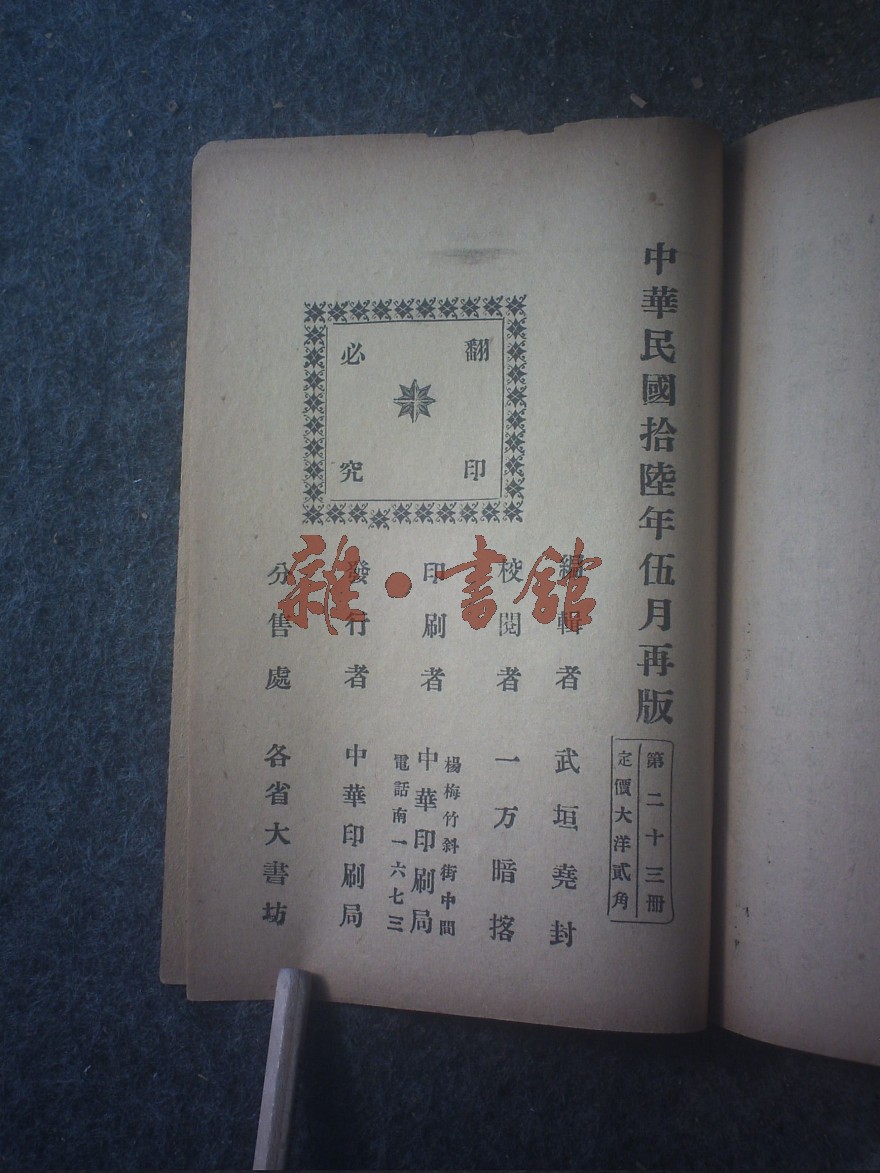 中華民國拾陸年伍月再版
第二十三冊
定價大洋貳角
翻印
必究
編輯者 武垣堯封
校閱者 一万暗撘
印刷者 楊梅竹斜街中間
中華印刷局
電話南一六七三
發行者 中華印刷局
分售處 各省大書坊
雜·書館